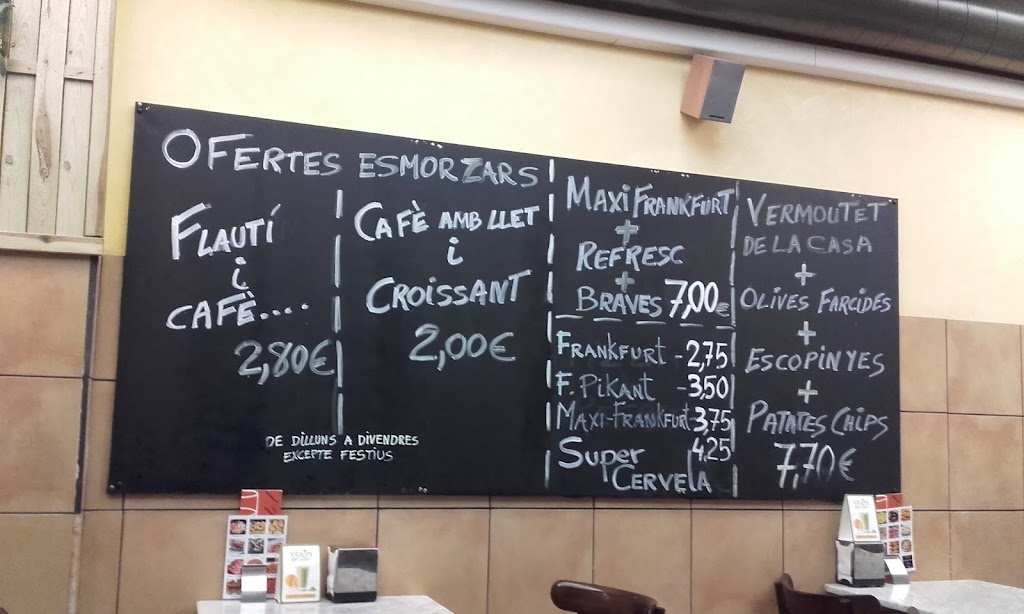 OFERTES ESMORZARS
FLAUTÍ
i
CAFÈ....
2,80€
CAFÈ AMB LLET
i
CROISSANT
2,00€
DE DILLUNS A DIVENDRES
EXCEPTE FESTIUS
MAXI FRANKFURT
+
REFRESC
+
BRAVES 7,00€
FRANKFURT - 2,75
F. PIKANT - 3,50
MAXI-FRANKFURT 3,75
SUPER 4,25
CERVELA
VERMOUTET
DE LA CASA
+
OLIVES FARCIDES
+
ESCOPINYES
+
PATATES CHIPS
7,70€